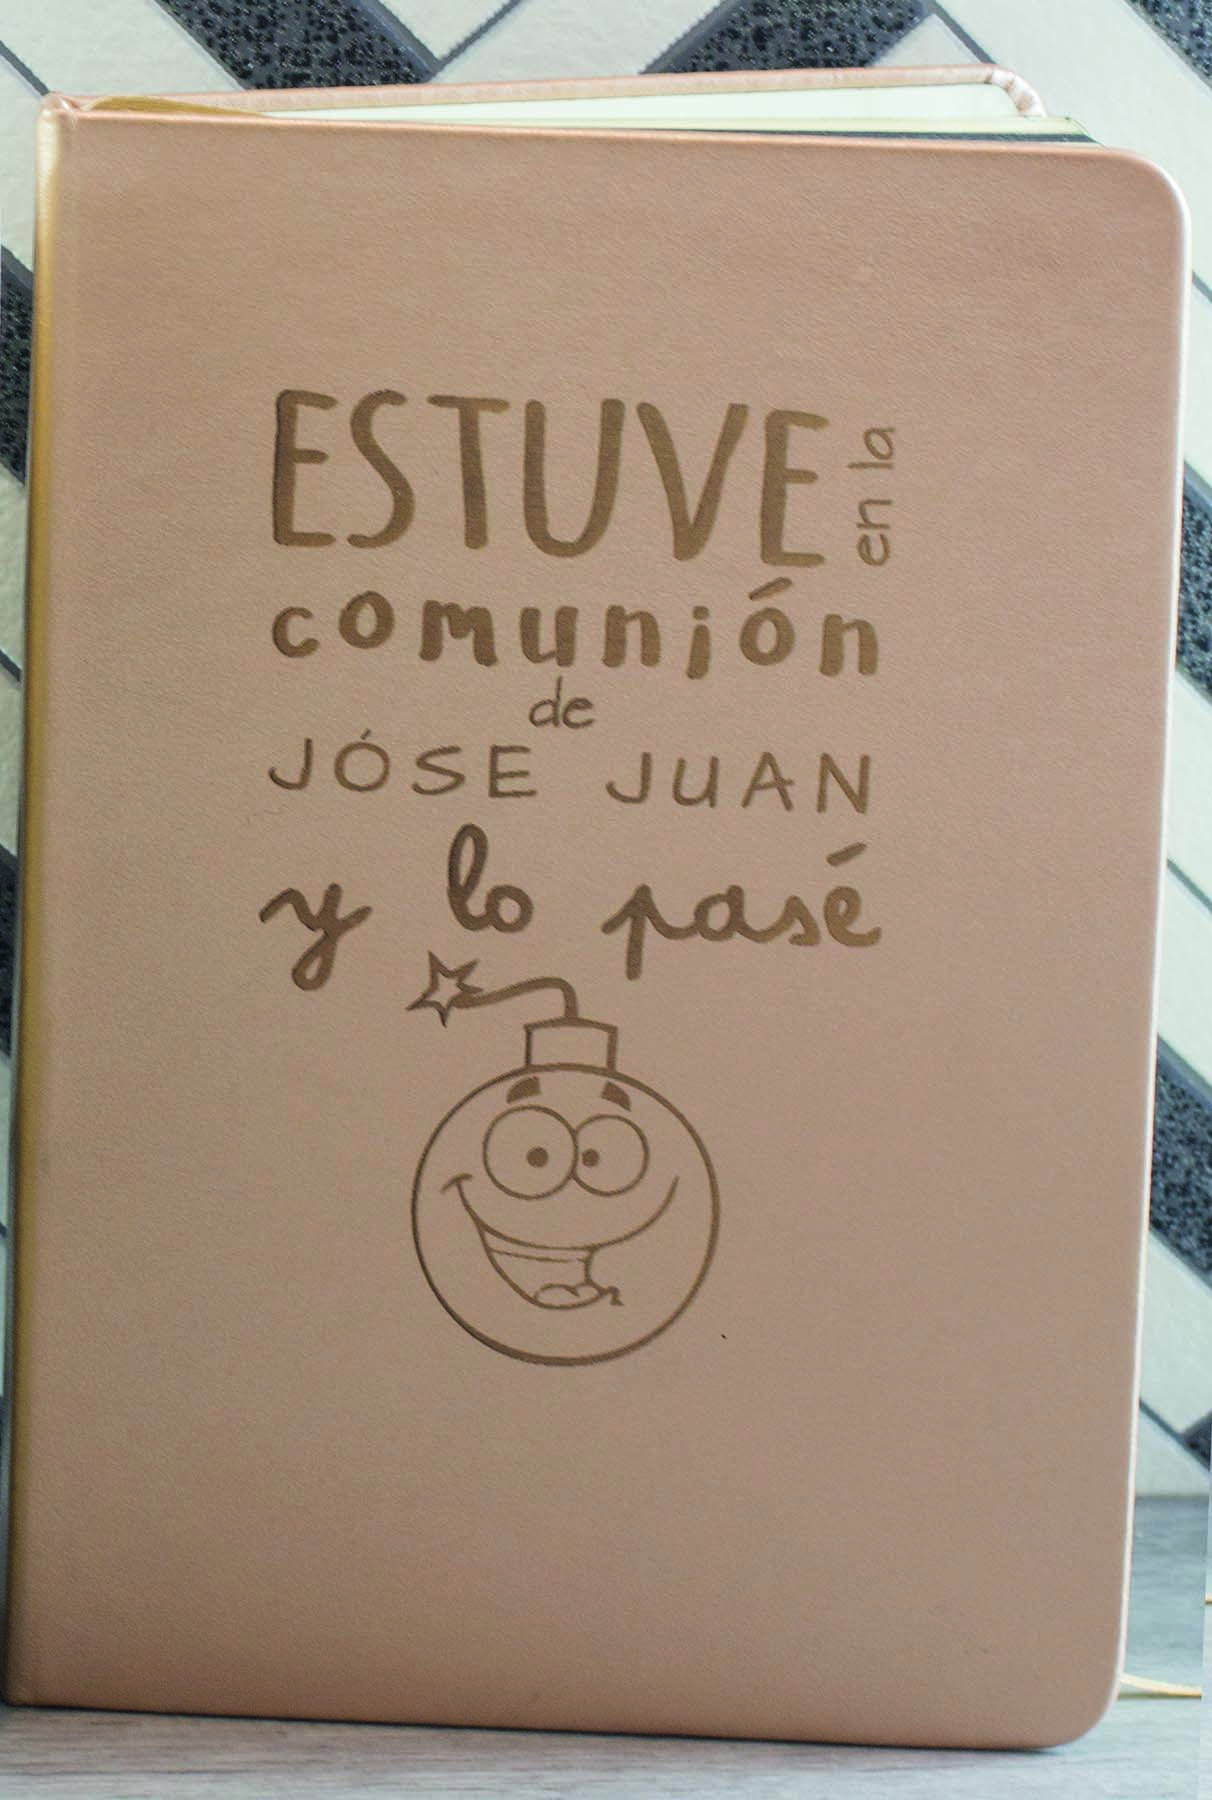 ESTUVE en la
comunión
de
JÓSE JUAN
y lo pasé